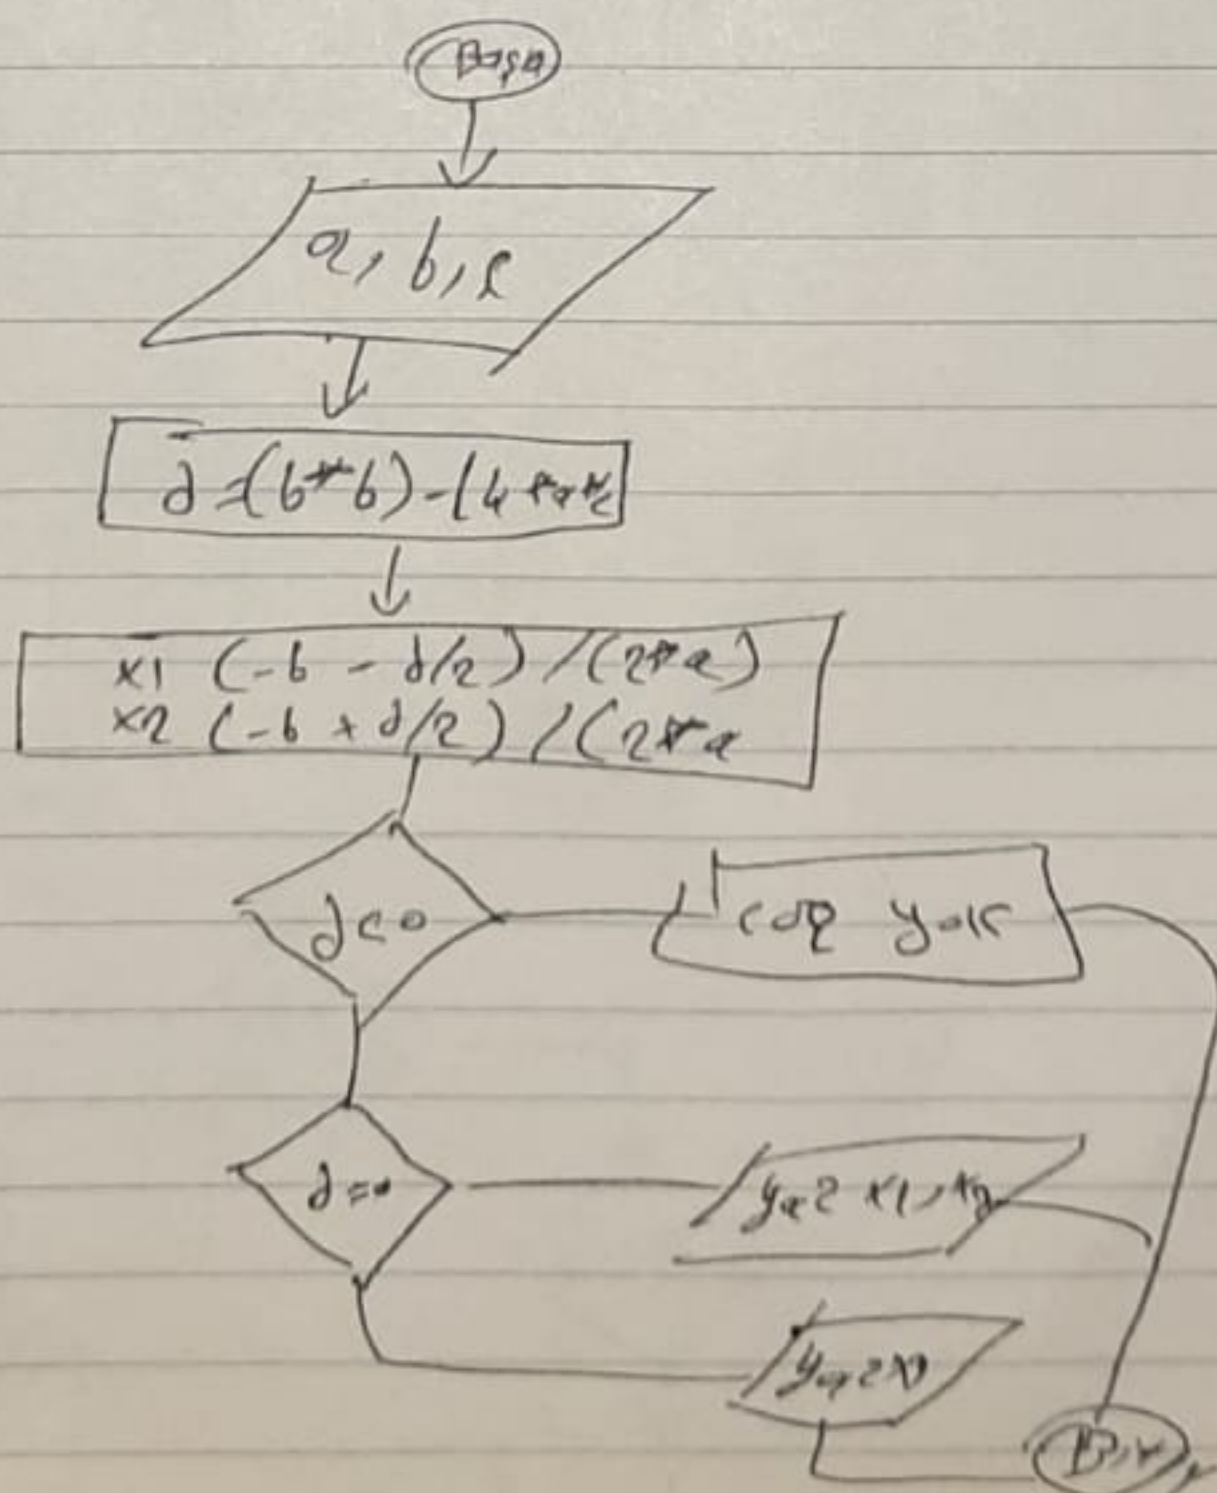 Başla
a, b, c
d=(b*b)-(4*a*c
x1 (-b - d/2) /(2*a)
x2 (-b + d/2) /(2*a
d<0
çöz yok
d==0
yaz x1, x2
yaz x1